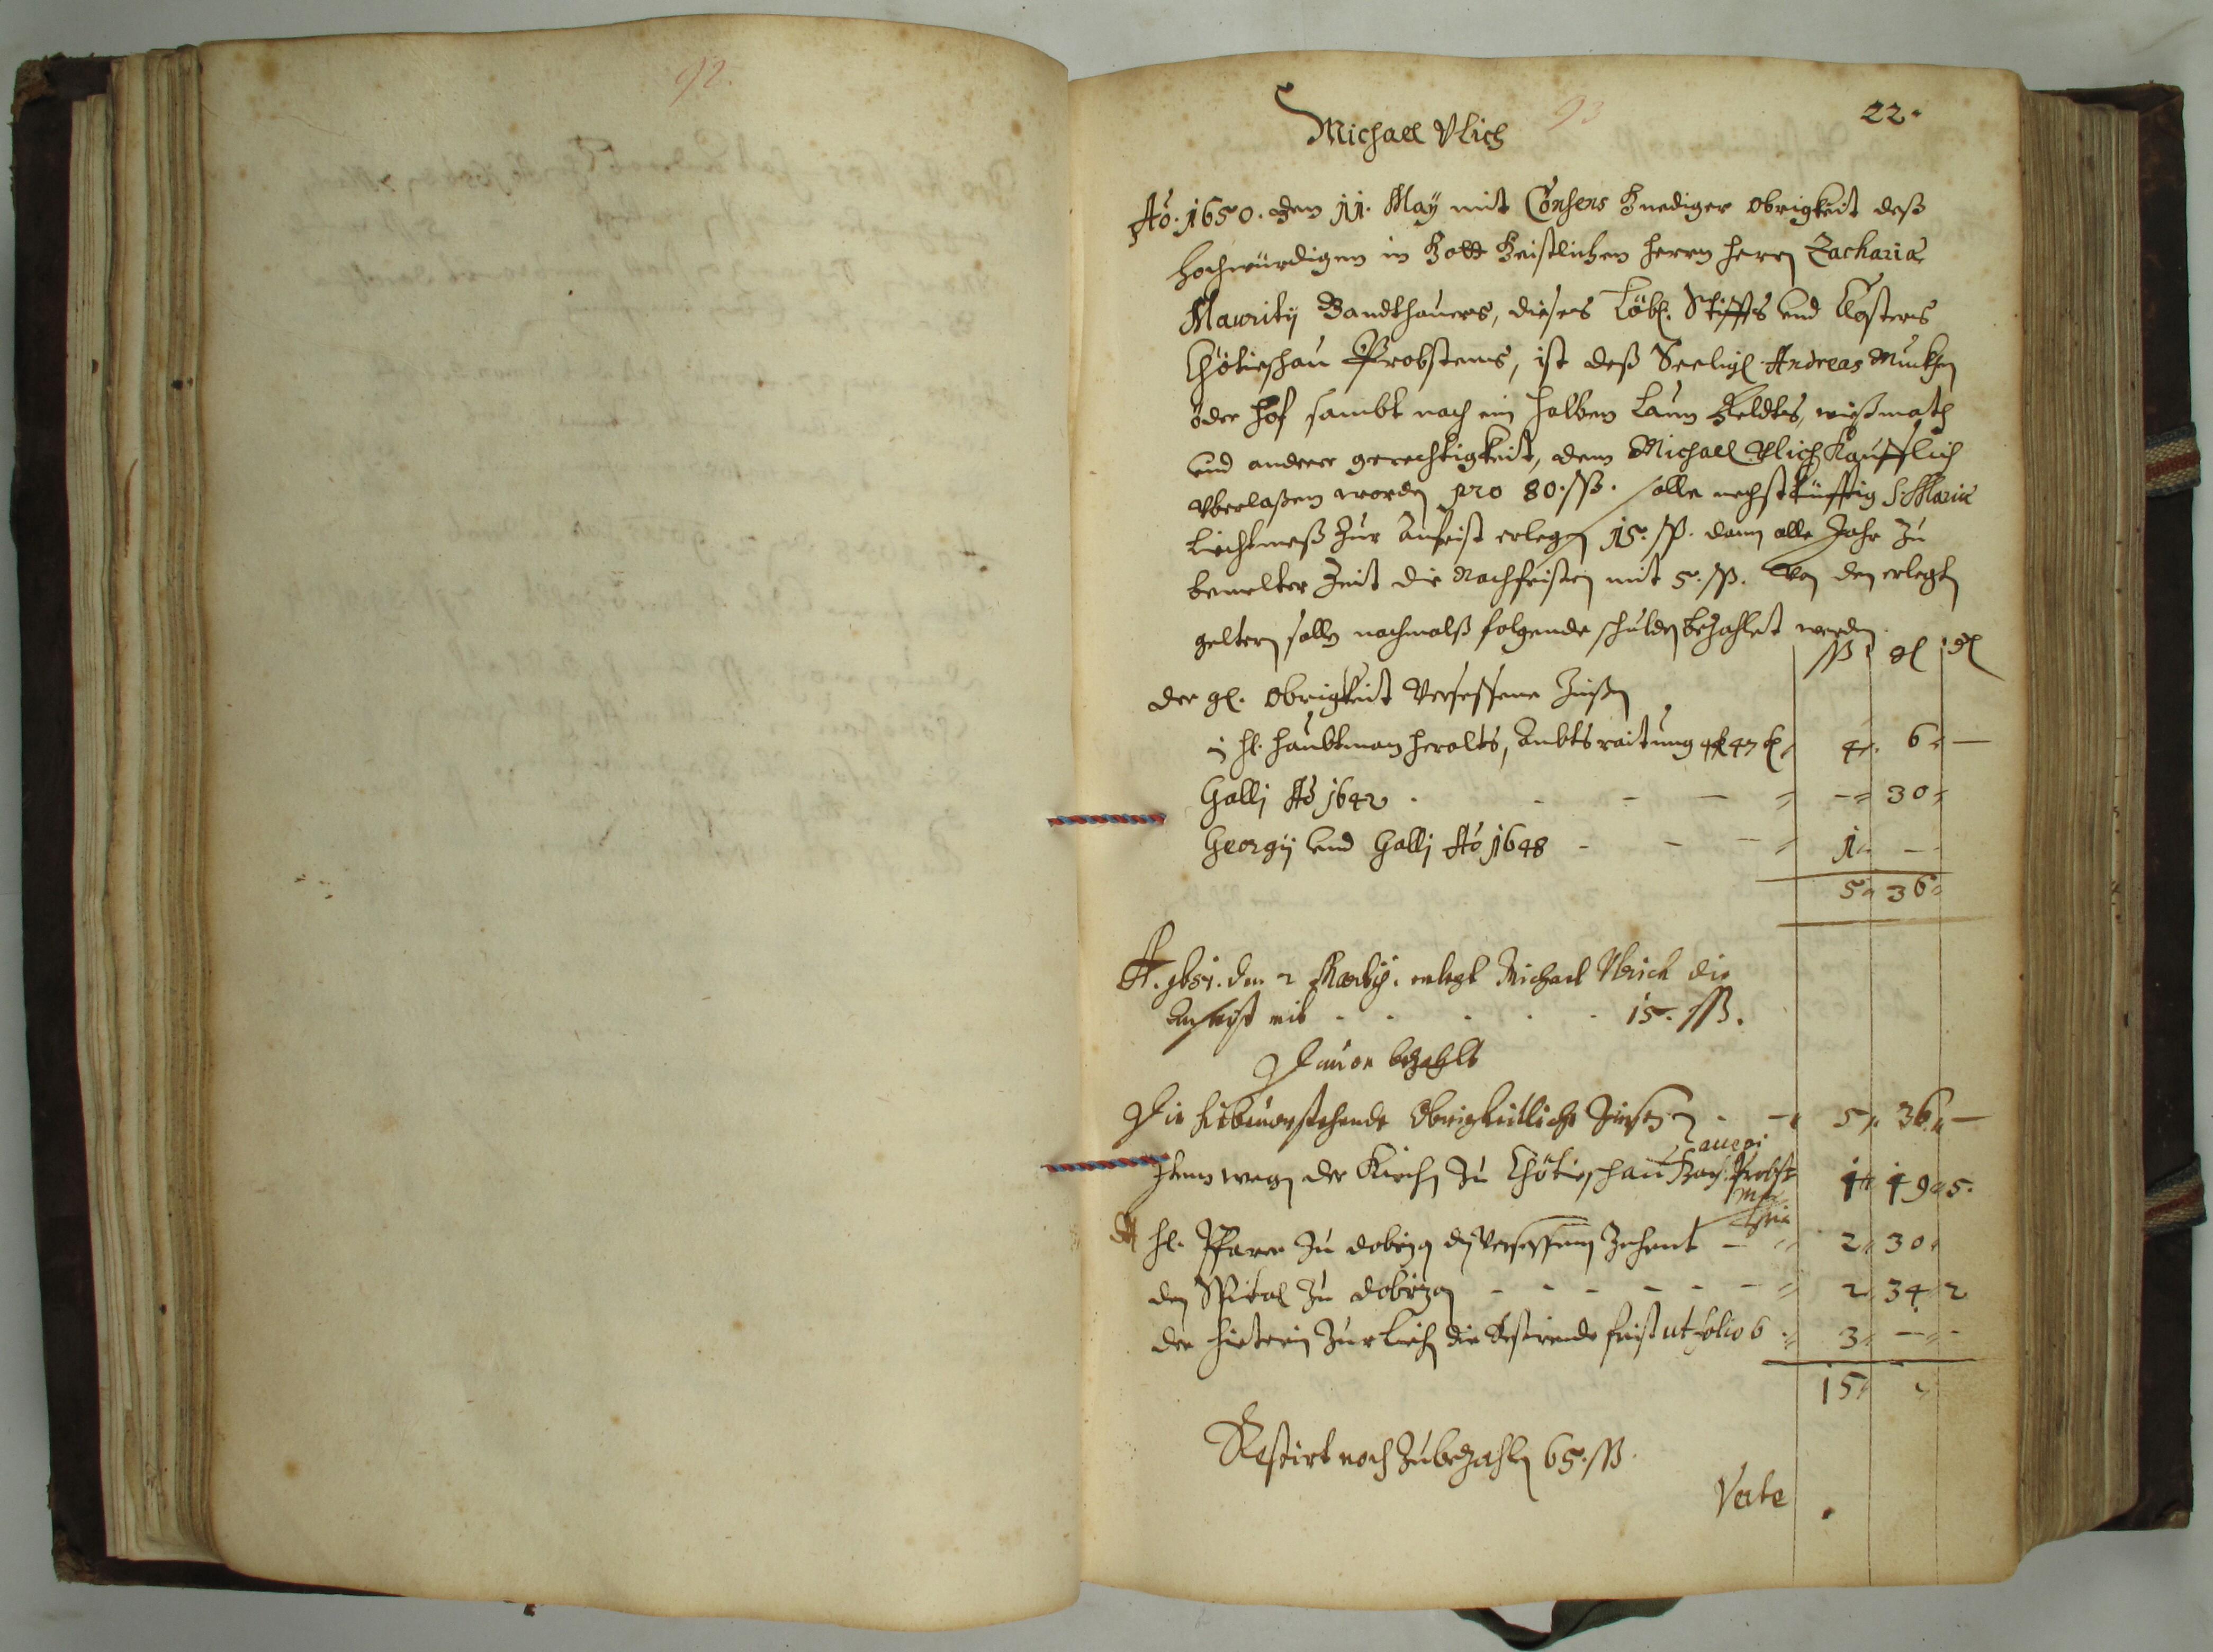 92.
93
22.
Michael Vlich
Ao. 1650. den 11. May mit Consens Gnediger obrigkeit deß
hochwürdigen in Gott Geistlichen herrn herrn Zachariæ
Maurity Bandthauers, dieses Löbl. Stiffts vnd Closters
Chotieschau Probstens, ist deß Seeligl Andreas
öder hof sambt noch ein halben Laun Feldts, wießmath
vnd anderer gerechtigkeit, dem Michael Vlich Kaufflich
vberlaßen worden pro 80. ßß. solle nechstkünfftig S. Mariæ
Liechtmeß zur Anfrist erlegen 15. ßß. dann alle Jahr zu
bemelter Zeit die Nachfristen mit 5. ßß. Von den erlegten
geltern sollen nachmalß folgende schulden bezahlet werden
ßß gl dl
der gl. Obrigkeit Versessene Zinßen
hl. haubtman heralts, Ambtsraitung 4 6 —
Galli Ao 1642 . - - — — 30
Georgij vnd Galli Ao 1648 - - — 1 —
5 36
A. 1651. den 2 Martij. erlegt Michael Vlrich die
Anfrist mit - - - - 15. ßß.
Dauon bezahlt
Die hieuorstehende Obrigkeitliche Zinßen - — 5 36 —
accepi
Item wegen der Kirchen zu Chotieschau Zach: Probst 1 19 5.
mpria
hl. Pfarer zu dobrzan den Versessenen Zehent — 2 30
den Spital zu dobrzan - - - - - — 2 34 2
der die Restirende frist ut folio 6 3 — -
15
Restirt noch zubezahlen 65. ßß.
Verte